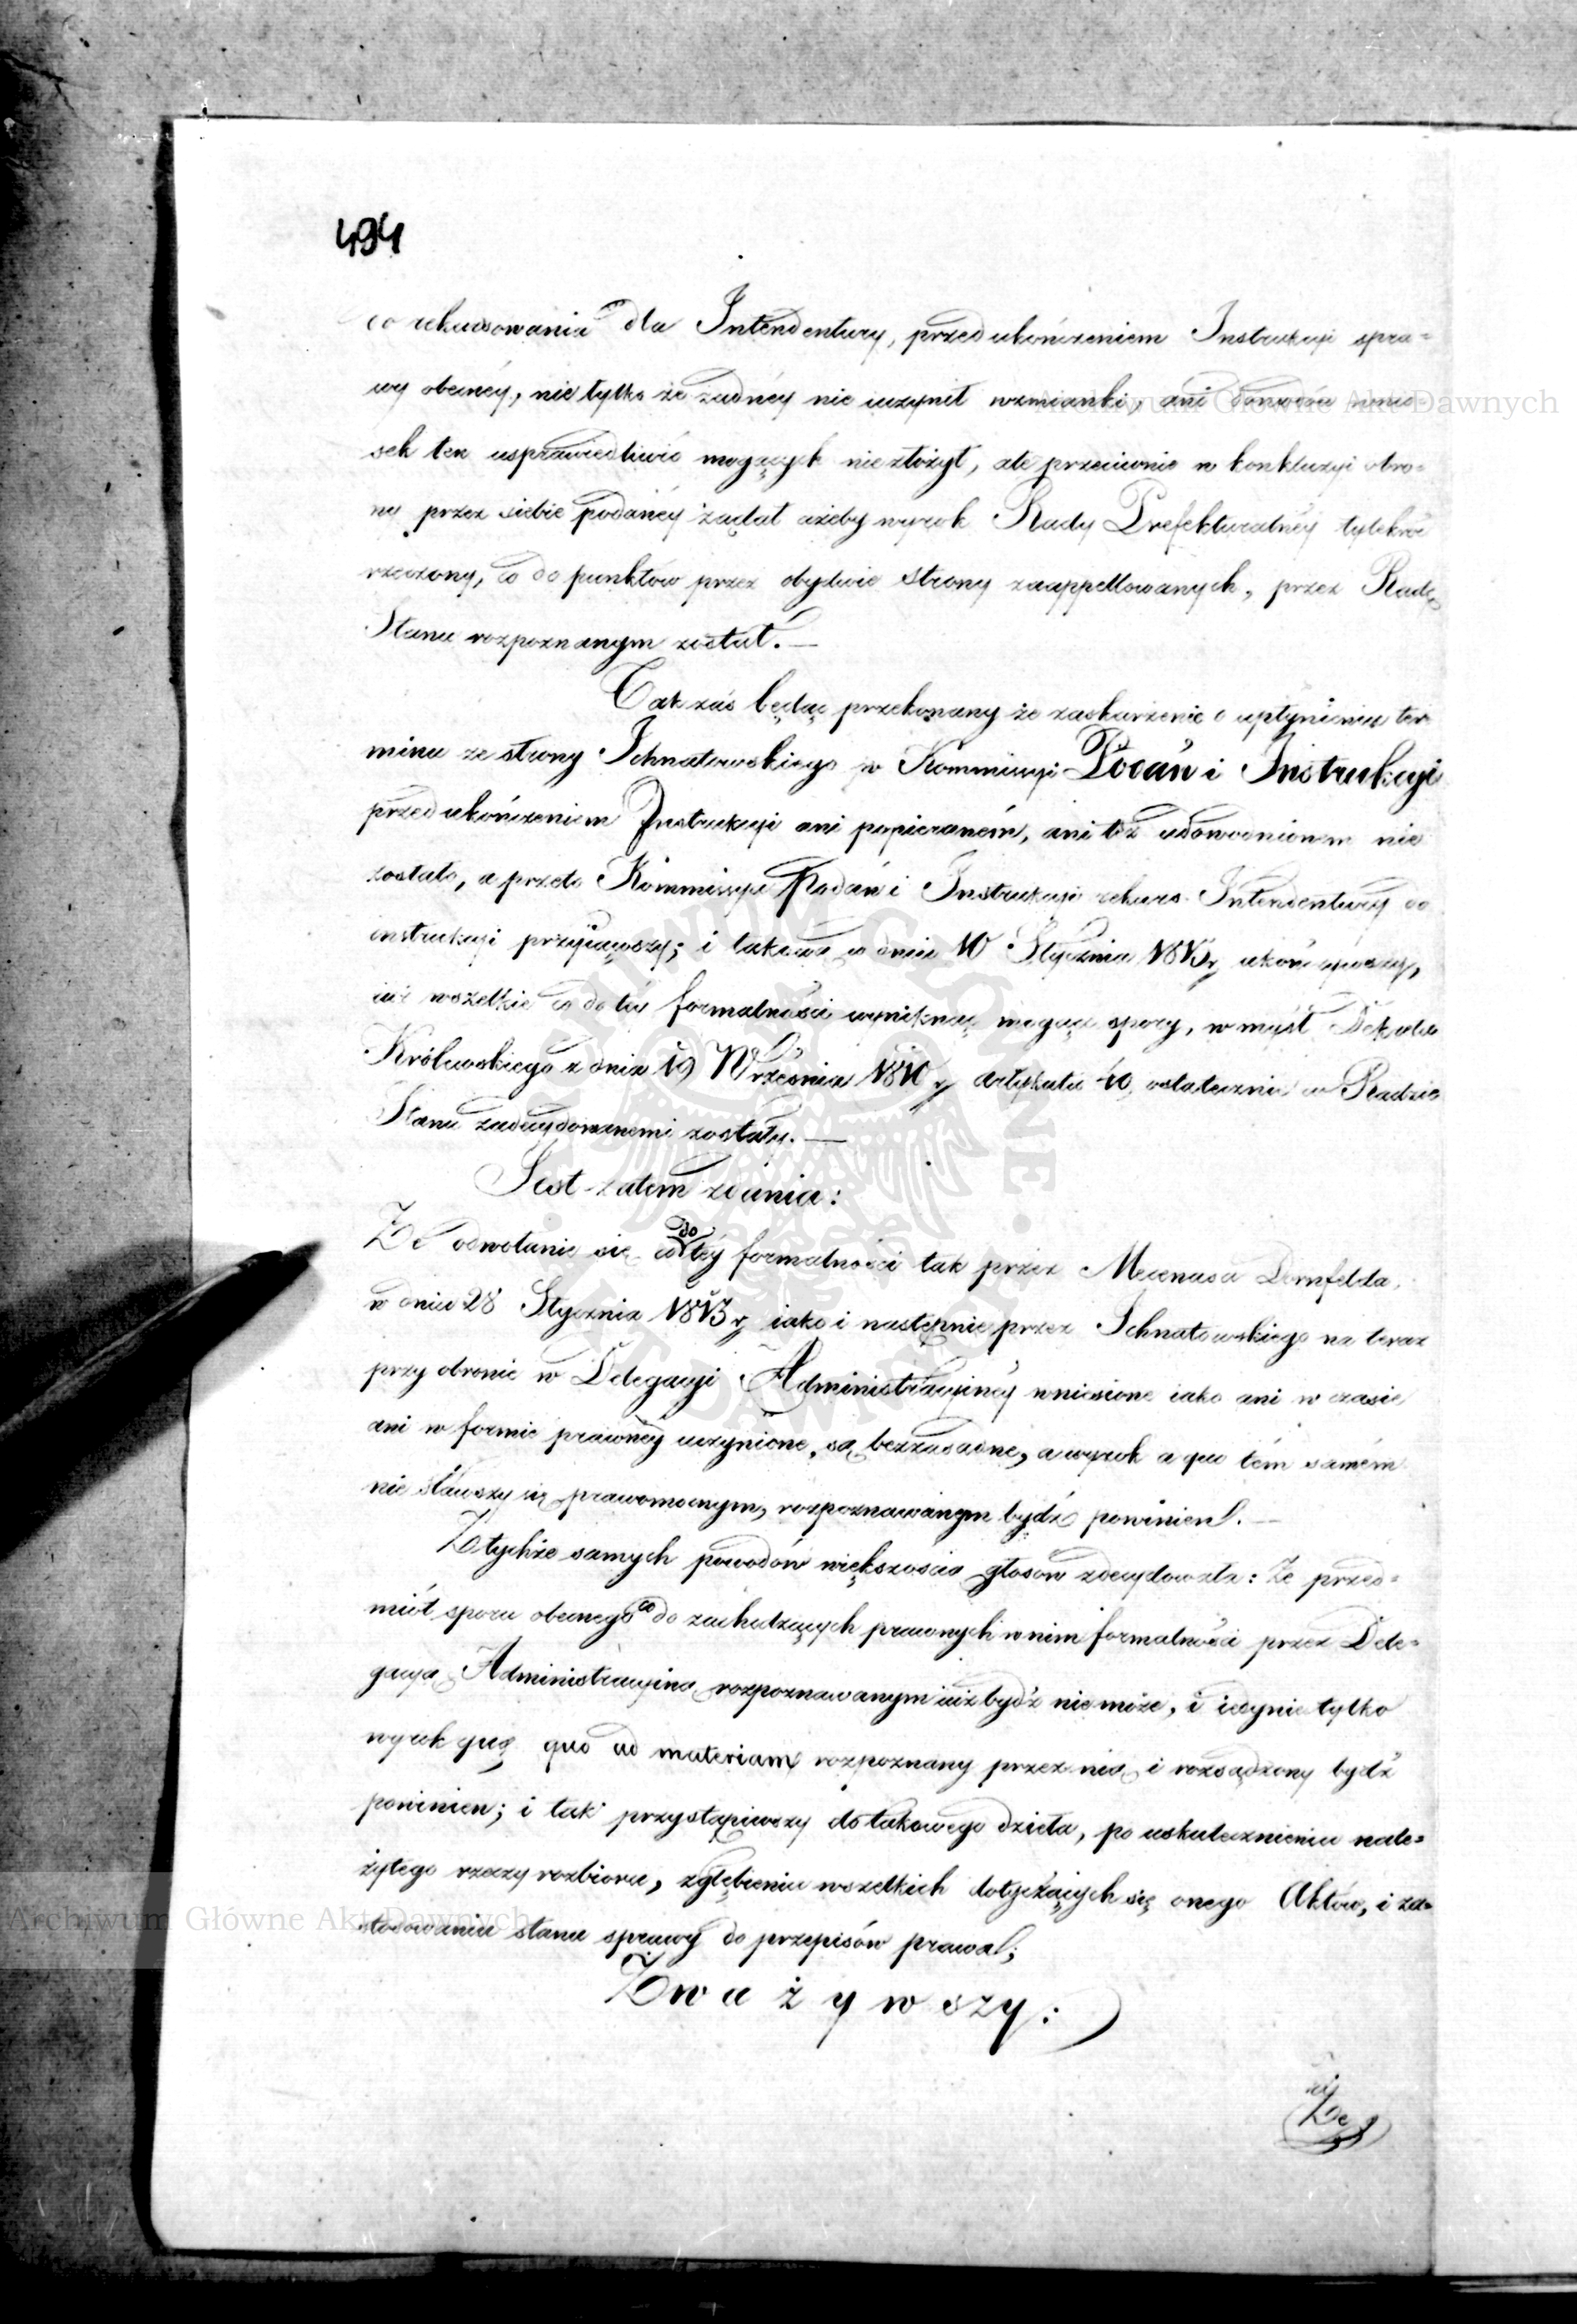 494
co rekursowania dla Intendentury, przed ukończeniem Instrukcyi spra=
wy obecnéy, nie tylko że żadnéy nie uczynił wzmianki, ani dowodów wnio=
sek ten usprawiedliwić mogących nie złożył, ale przeciwnie w konkluzyi obro=
ny przez siebie podanéy żądał ażeby wyrok Rady Prefekturalnéy tylekroć
rzeczony, co do punktów przez obydwie strony zaappellowanych, przez Radę
Stanu rozpoznanym został. —
Tak zaś będąc przekonany że zaskarżenie o upłynieniu ter
minu ze strony Ichnatowskiego w Kommissyi Podań i Instrukcyi
przed ukończeniem Instrukcyi ani popieraném, ani też udowodnionem nie
zostało, a przeto Kommissya Podań i Instrukcyi rekurs Intendentury do
instrukcyi przyiąwszy; i takową w dniu 10 Stycznia 1813 r. ukończywszy,
iuż wszelkie co do téy formalności wyniknąć mogące spory, w myśl Dekretu
Królewskiego z dnia 19 Września 1810 r. artykułu 40, ostatecznie w Radzie
Stanu zadecydowanemi zostały. —
Jest zatem zdania:
Że odwołanie się co do téy formalności tak przez Mecenasa Dornfelda,
w dniu 28 Stycznia 1813 r. iako i następnie przez Ichnatowskiego na teraz
przy obronie w Delegacyi Administracyinéy wniesione iako ani w czasie
ani w formie prawnéy uczynione, są bezzasadne, a wyrok a quo tém samém
nie stawszy się prawomocnym, rozpoznawanym bydź powinien. —
Z tychże samych powodów większością głosów zdecydowała: Że przed=
miót sporu obecnego co do zachodzących prawnych w nim formalności przez Dele=
gacyą Administracyiną rozpoznawanym iuż bydź nie może, i iedynie tylko
wyrok quo ad materiam rozpoznany przez nią i rozsądzony bydź
powinien; i tak przystąpiwszy do takowego dzieła, po uskutecznieniu nale=
żytego rzeczy rozbioru, zgłębieniu wszelkich dotyczących się onego Aktów, i za=
stosowaniu stanu sprawy do przepisów prawa;
Zważywszy:
Że
Archiwum Główne Akt Dawnych
Archiwum Główne Akt Dawnych
ARCHIWUM GŁÓWNE AKT DAWNYCH